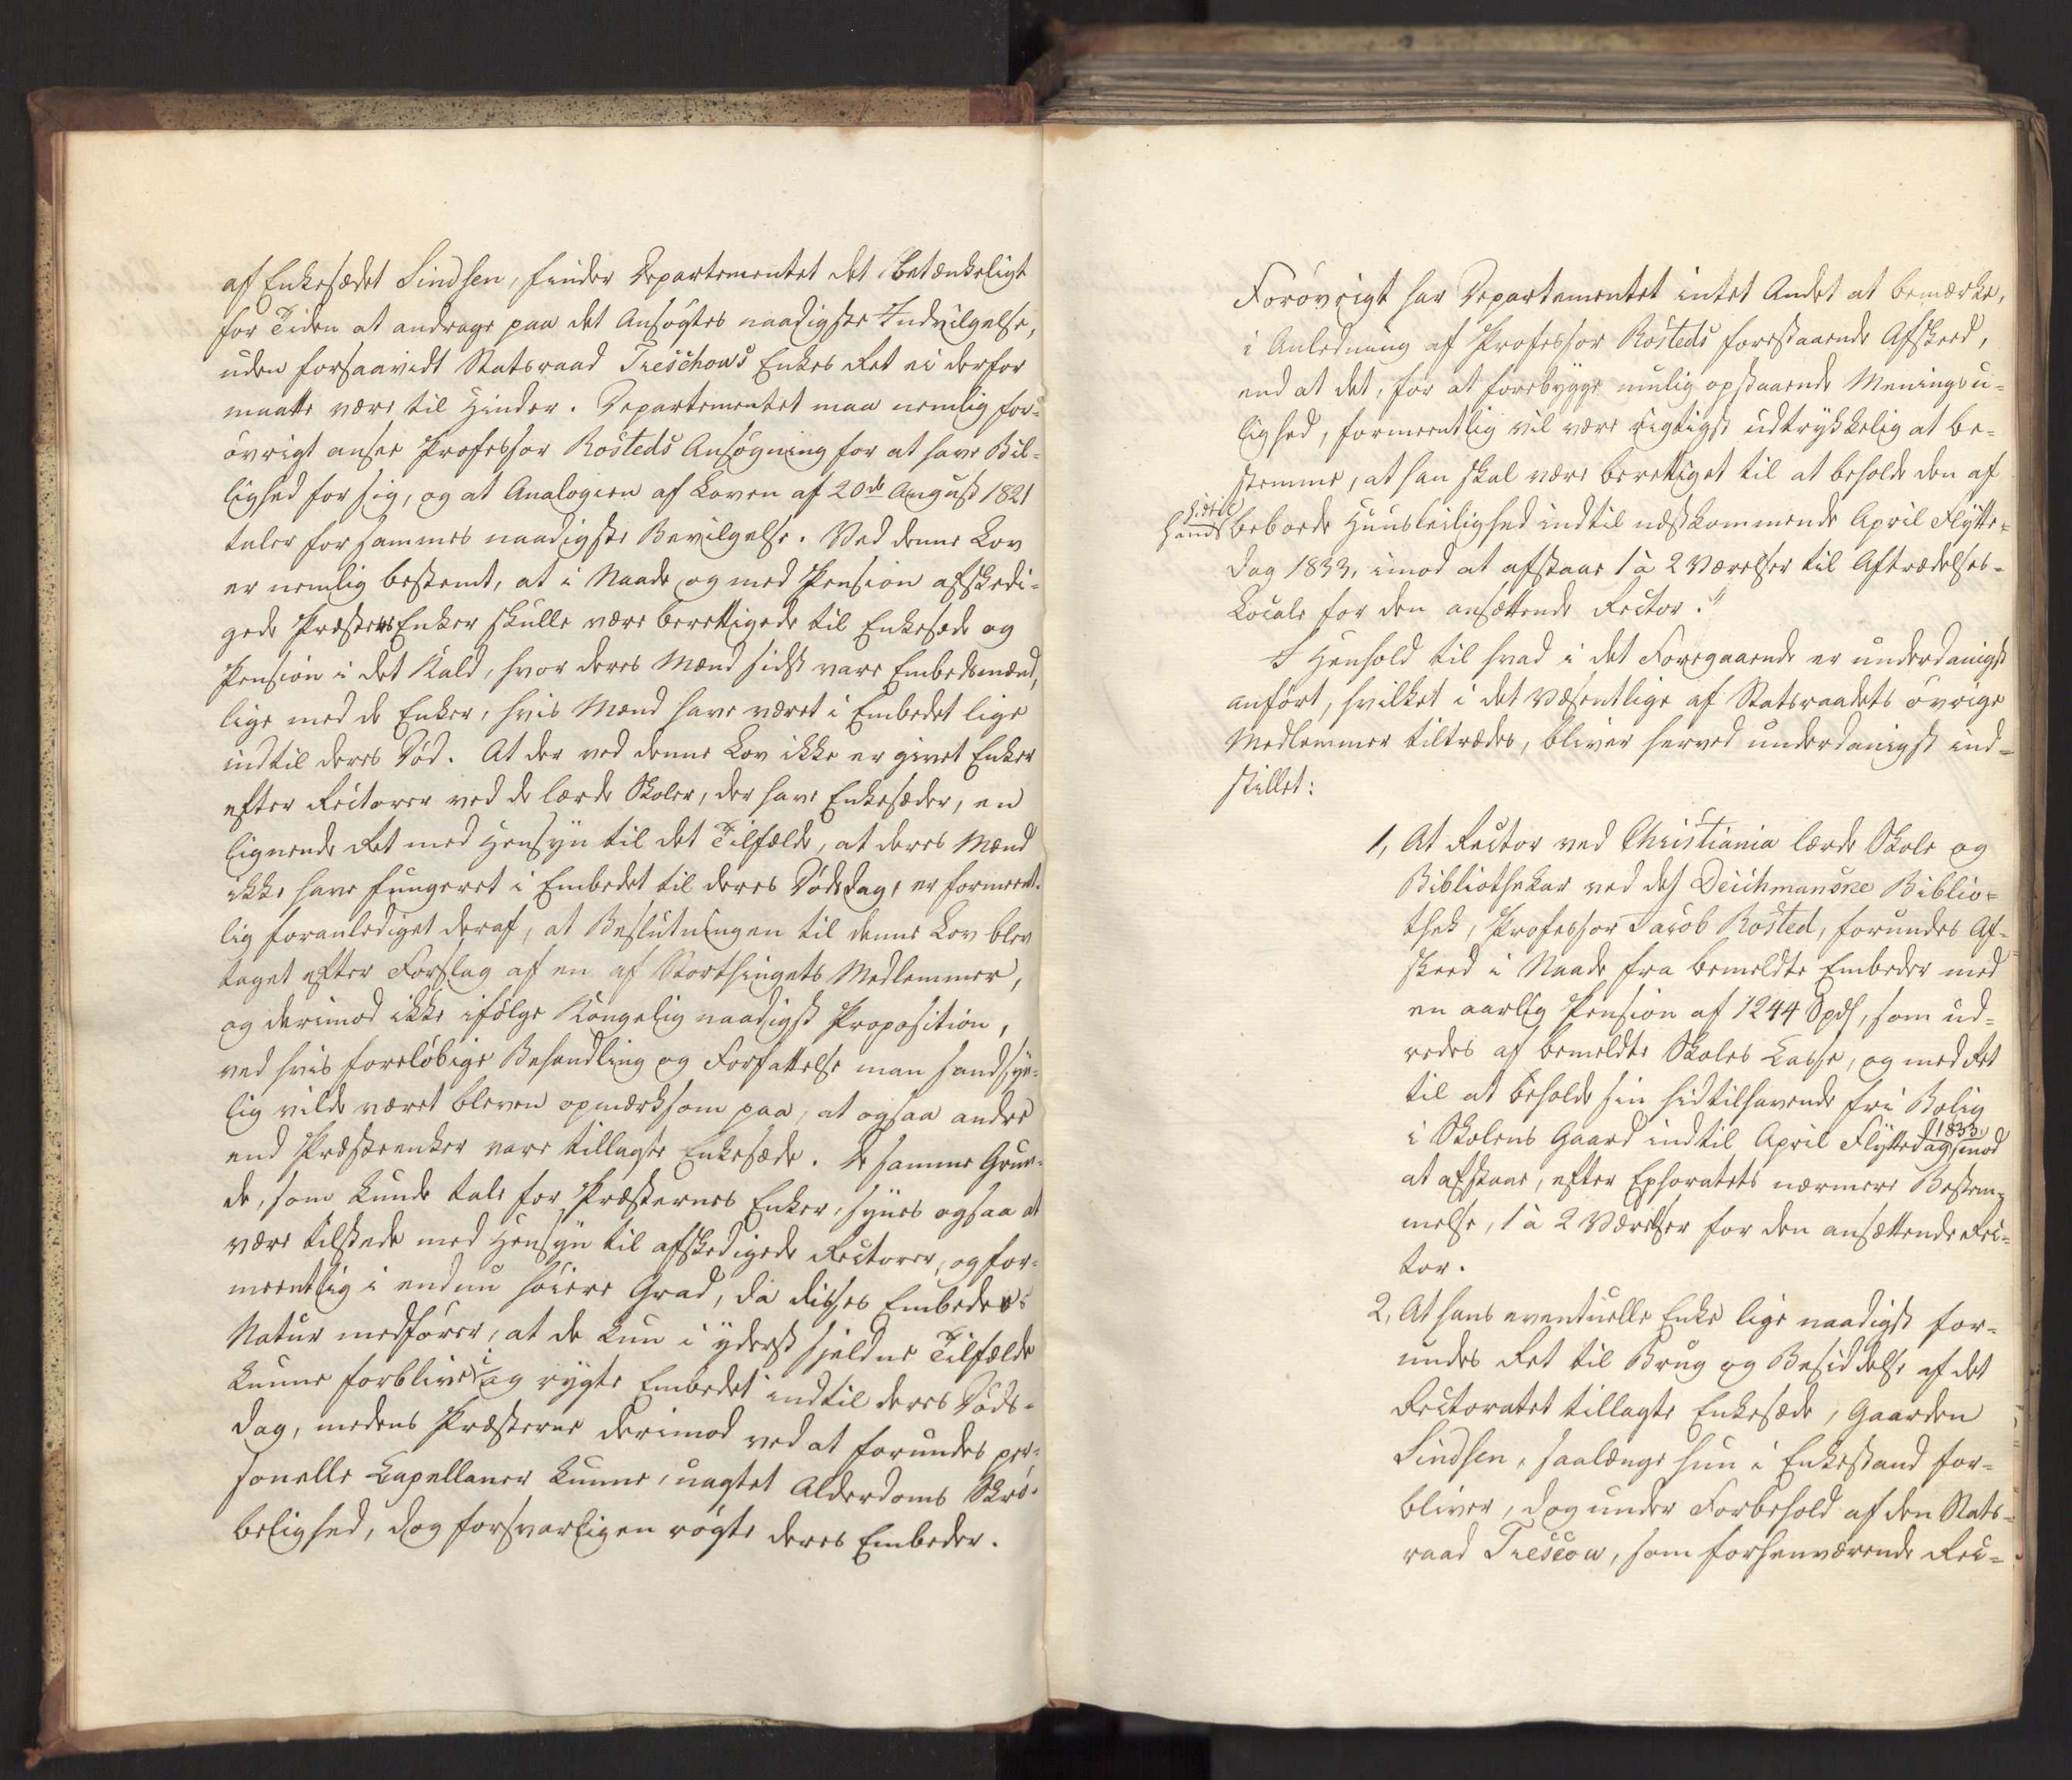 af Enkesædet Sindsen, finder Departementet det betænkeligt
for Tiden at andrage paa det Ansøgtes naadigste Indvilgelse,
uden forsaavidt Statsraad Treschows Enkes Ret ei derfor
maatte være til Hinder. Departementet maa nemlig for-
øvrigt ansee Professor Rosteds Ansøgning for at have Bil-
lighed for sig, og at Analogien af Loven af 20de August 1821
taler for sammes naadigste Bevilgelse. Ved denne Lov
er nemlig bestemt, at i Naade og med Pension afskedi-
gede Præsters Enker skulle være berettigede til Enkesæde og
Pension i det Kald, hvor deres Mænd sidst vare Embedsmænd,
lige med de Enker, hvis Mænd have været i Embedet lige
indtil deres Død. At der ved denne Lov ikke er givet Enker
efter Rectorer ved de lærde Skoler, der have Enkesæder, en
lignende Ret med Hensyn til det Tilfælde, at deres Mænd
ikke have fungeret i Embedet til deres Dødsdag, er formeent-
lig foranlediget deraf, at Beslutningen til denne Lov blev
taget efter Forslag af en af Storthingets Medlemmer,
og derimod ikke ifølge Kongelig naadigst Proposition,
ved hvis foreløbige Behandling og Forfattelse man sandsyn-
lig vilde været bleven opmærksom paa, at ogsaa andre
end Præsteenker vare tillagte Enkesæde. De samme Grun-
de, som kunde tale for Præsternes Enker, synes ogsaa at
være tilstede med Hensyn til afskedigede Rectorer, og for-
meentlig i endnu høiere Grad, da disses Embeders
Natur medfører, at de kun i yderst sjeldne Tilfælde
kunne forblive i og røgte Embedet indtil deres Døds-
dag, medens Præsterne derimod ved at forundes per-
sonelle Capellaner kunne, uagtet Alderdoms Skrø-
belighed, dog forsvarligen røgte deres Embeder.
Forøvrigt har Departementet intet Andet at bemærke,
i Anledning af Professor Rosteds forestaaende Afskeed,
end at det, for at forebygge mulig opstaaende Meningsu-
lighed, formeentlig vil være rigtigst udtrykkelig at be-
stemme, at han skal være berettiget til at beholde den af
ham hidtil beboede Huusleilighed indtil næstkommende April Flytte-
dag 1833, imod at afstaae 1 à 2 Værelser til Aftrædelses-
Locale for den ansættende Rector."
I Henhold til hvad i det Foregaaende er underdanigst
anført, hvilket i det Væsentlige af Statsraadets øvrige
Medlemmer tiltrædes, bliver herved underdanigst ind-
stillet:
1, At Rector ved Christiania lærde Skole og
Bibliothekar ved det Deichmanske Biblio-
thek, Professor Jacob Rosted, forundes Af-
skeed i Naade fra bemeldte Embeder med
en aarlig Pension af 1244 Spd, som ud-
redes af bemeldte Skoles Casse, og med Ret
til at beholde sin hidtilhavende fri Bolig
i Skolens Gaard indtil April Flyttedag 1833, mod
at afstaae, efter Ephoratets nærmere Bestem-
melse, 1 à 2 Værelser for den ansættende Rec-
tor.
2, At hans eventuelle Enke lige naadigst for-
undes Ret til Brug og Besiddelse af det
Rectoratet tillagte Enkesæde, Gaarden
Sindsen, saalænge hun i Enkestand for-
bliver, dog under Forbehold af den Stats-
raad Trescow, som forhenværende Rec-